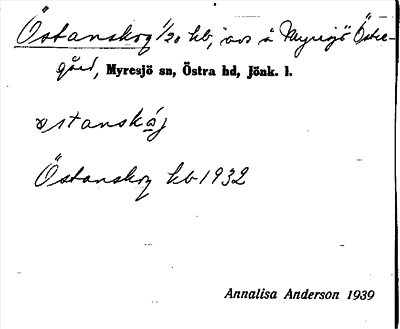 Östanskog 1/20 hb, avs å Myresjö Öster-
gård, Myresjö sn, Östra hd, Jönk. l.
østanskåj
Östanskog hb 1932
Annalisa Anderson 1939